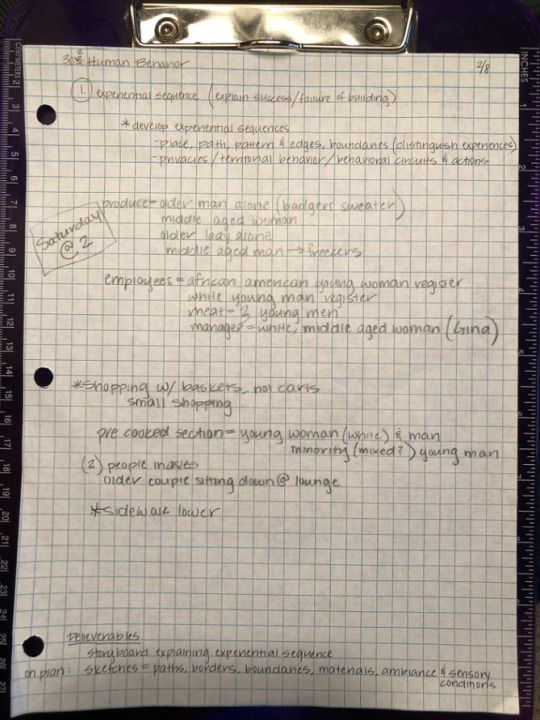 Human Behavior
2/8
1. experiential sequence (explain success/failure of building)
* develop experiential sequences
- place, path, pattern & edges, boundaries (distinguish experiences)
- privacies/territorial behavior/behavioral circuits & actions
Saturday
@ 2
produce - older man alone (badgers sweater)
middle aged woman
older lady alone
middle aged man → freezers
employees = african american young woman register
white young man register
meat = 3 young men
manager = white, middle aged woman (Gina)
* shopping w/ baskets, not carts
small shopping
pre cooked section = young woman (white) & man
minority (mixed?) young man
(2) people
older couple sitting down @ lounge
* sidewalk lower
Deliverables
storyboard explaining experiential sequence
on plan: sketches = paths, borders, boundaries, materials, ambiance & sensory
conditions
INCHES